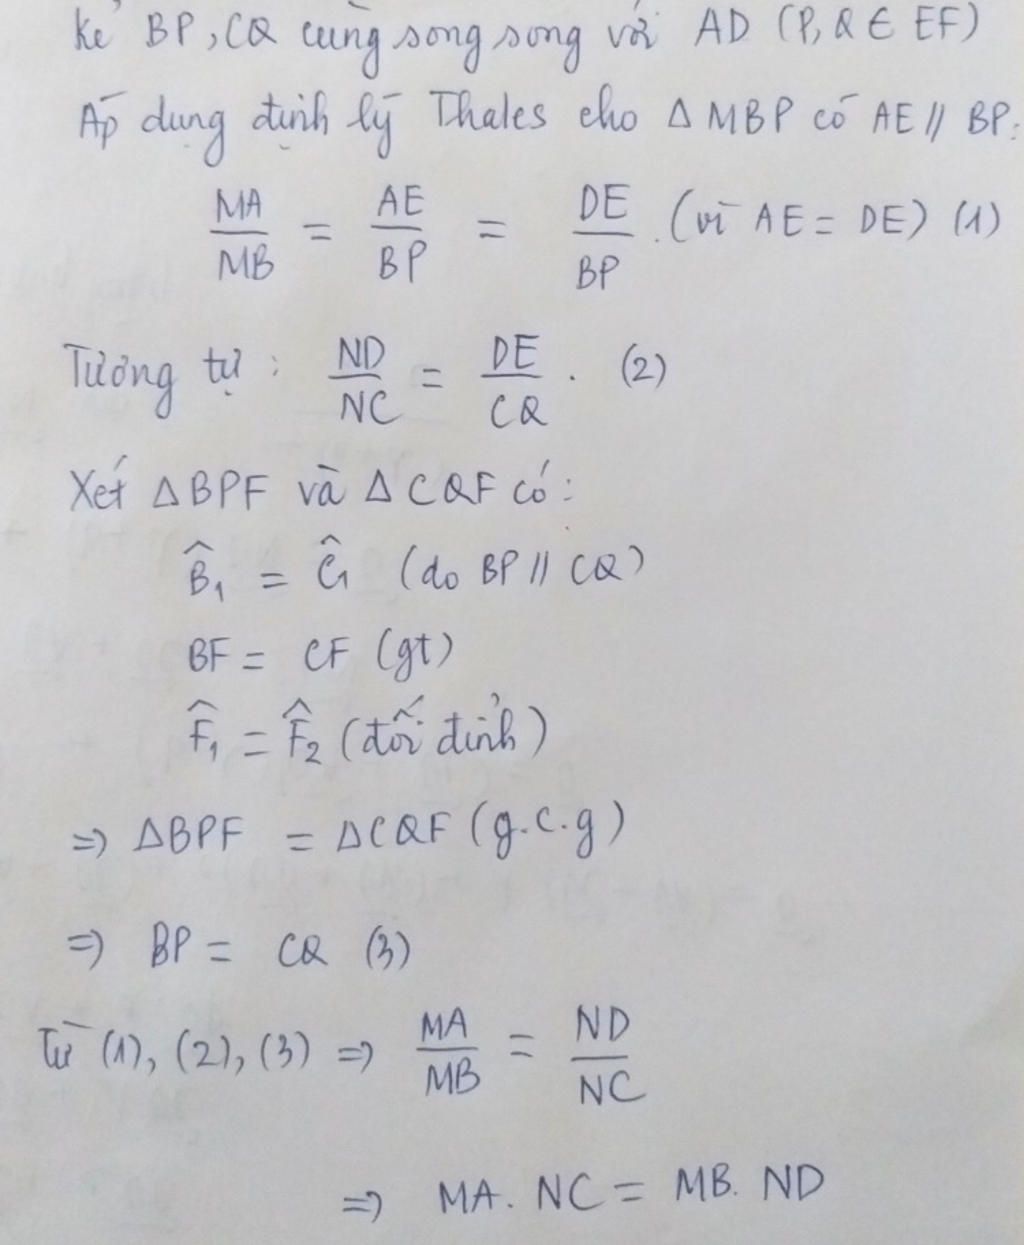 Kẻ BP, CQ cùng song song với AD (P, Q ∈ EF)
Áp dụng định lý Thales cho Δ MBP có AE // BP:
MA/MB = AE/BP = DE/BP. (vì AE = DE) (1)
Tương tự: ND/NC = DE/CQ. (2)
Xét ΔBPF và ΔCQF có:
B̂₁ = Ĉ₁ (do BP // CQ)
BF = CF (gt)
F̂₁ = F̂₂ (đối đỉnh)
=> ΔBPF = ΔCQF (g.c.g)
=> BP = CQ (3)
Từ (1), (2), (3) => MA/MB = ND/NC
=> MA. NC = MB. ND